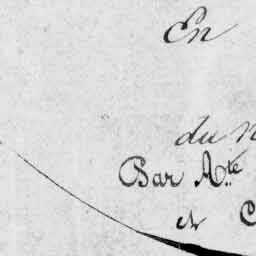 En
du
Bar Ate
et C